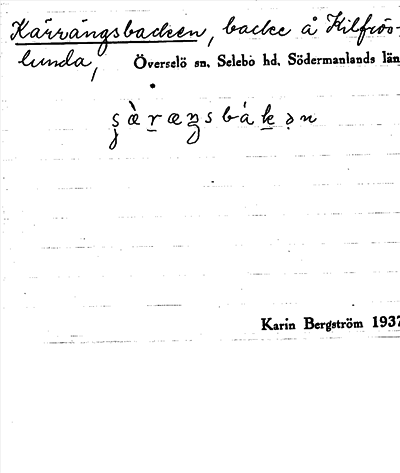 Kärrängsbacken, backe å Kilfrös-
lunda,
Överselö sn, Selebo hd, Södermanlands län
Karin Bergström 1937